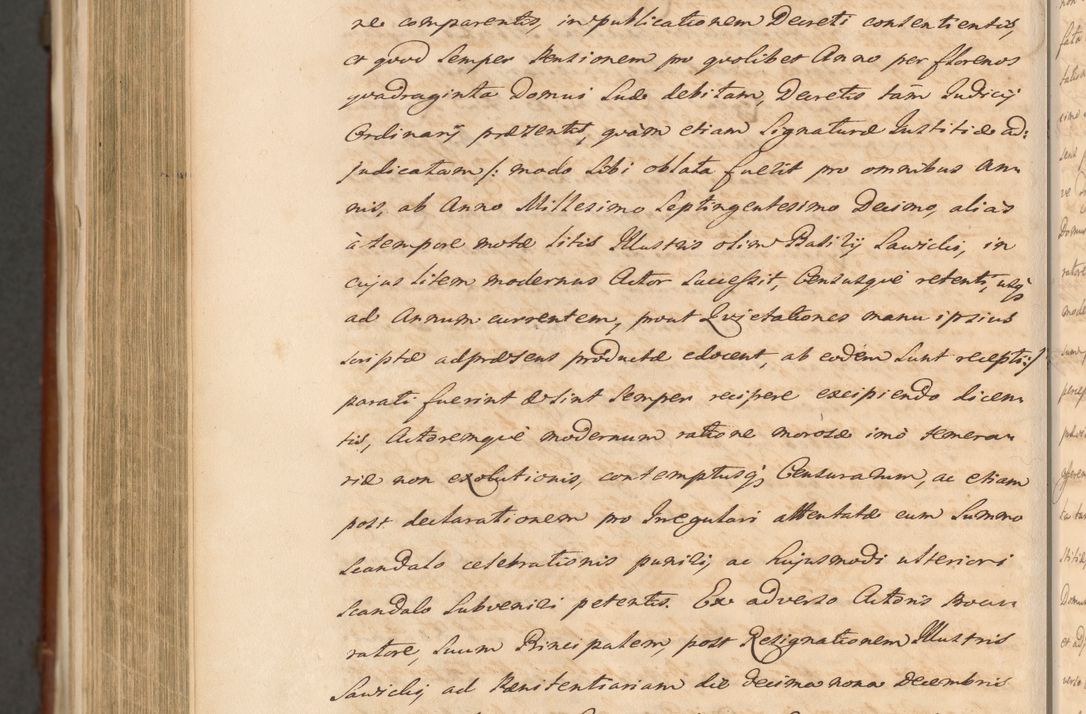 ne comparentis, in publicationem Decreti consentientis,
et quod semper Pensionem pro quolibet Anno per florenos
quadraginta Domui suæ debitam, Decretis tàm Judicij
Ordinarij præsentis, quàm etiam Signaturæ Justitiæ ad:
judicatam /: modo sibi oblata fuerit pro omnibus An
nis, ab Anno Millesimo Septingentesimo Decimo, aliàs
à tempore motæ litis Illustris olim Basilij Sawicki, in
cujus litem modernus Actor successit, Censusquè retenti, usq
ad Annum currentem, prout Quietationes manu ipsius
scriptæ ad præsens productæ edocent, ab eodèm sunt recepti :/
parati fuerint & sint semper recipere excipiendo dicen
tis, Actoremquè modernum ratione morosæ imò temera
riæ non exolutionis, contemptusq; Censurarum, ac etiam
post declarationem pro Irregulari attentatæ cum summo
scandalo celebrationis puniri, ac hujusmodi ulteriori
scandalo subveniri petentis. Ex adverso Actoris Procu
ratore, suum Principalem, post Resignationem Illustris
Sawickij ad Pænitentiariam die decima nona Decembris